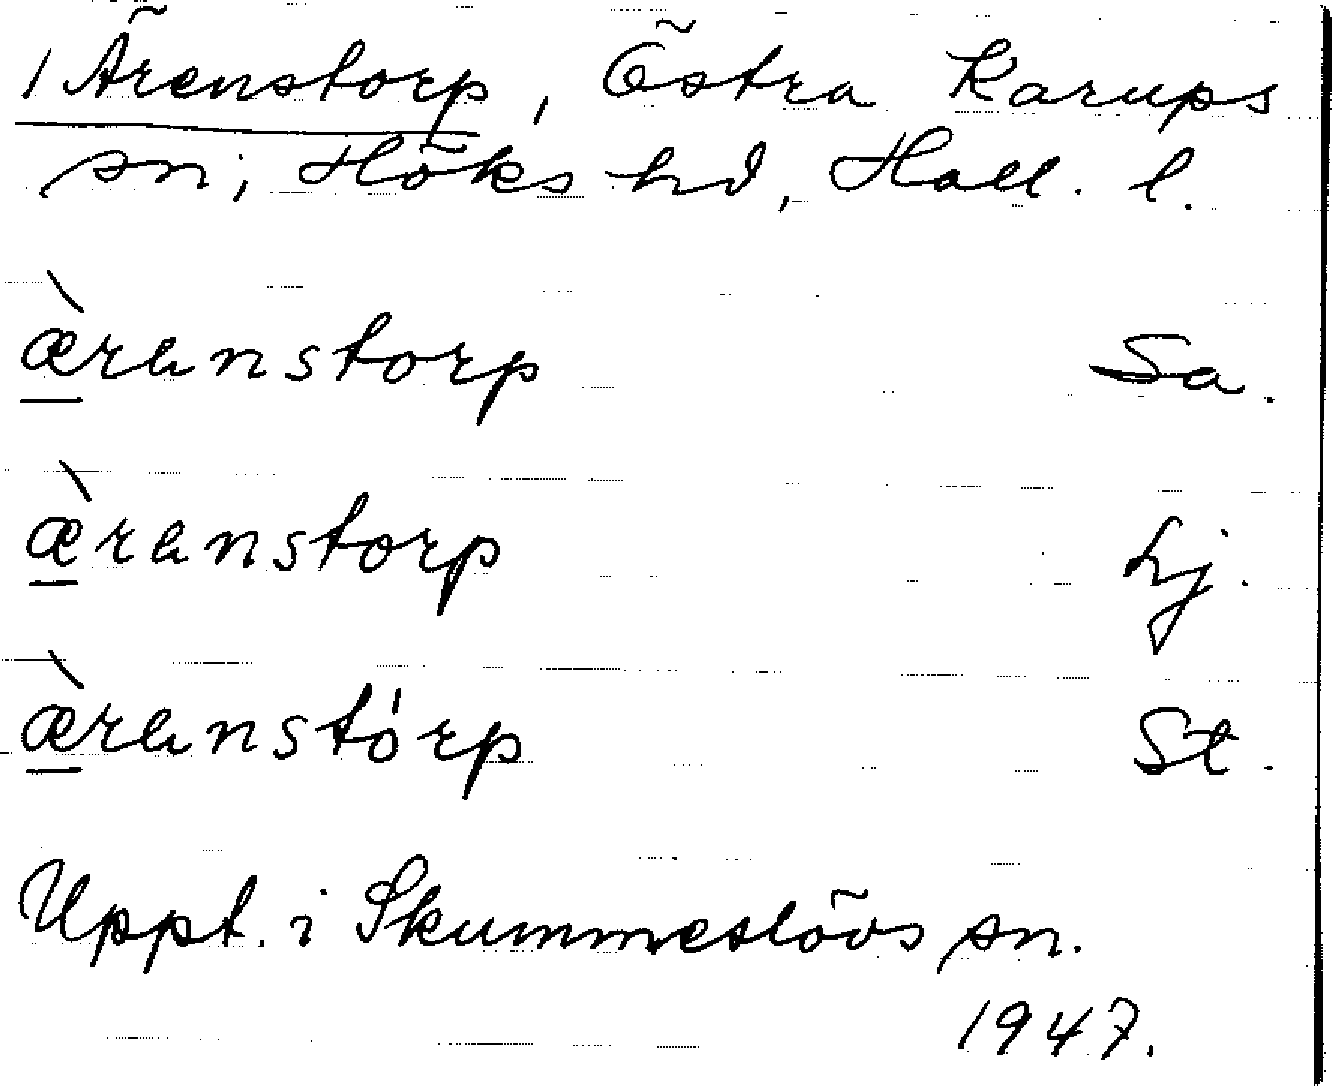 1 Ärenstorp, Östra Karups
sn, Höks hd, Hall. l.
æ̀ranstorp Sa.
æ̀ranstorp hj.
æ̀ranstórp St.
Uppt. i Skummeslövs sn.
1947.